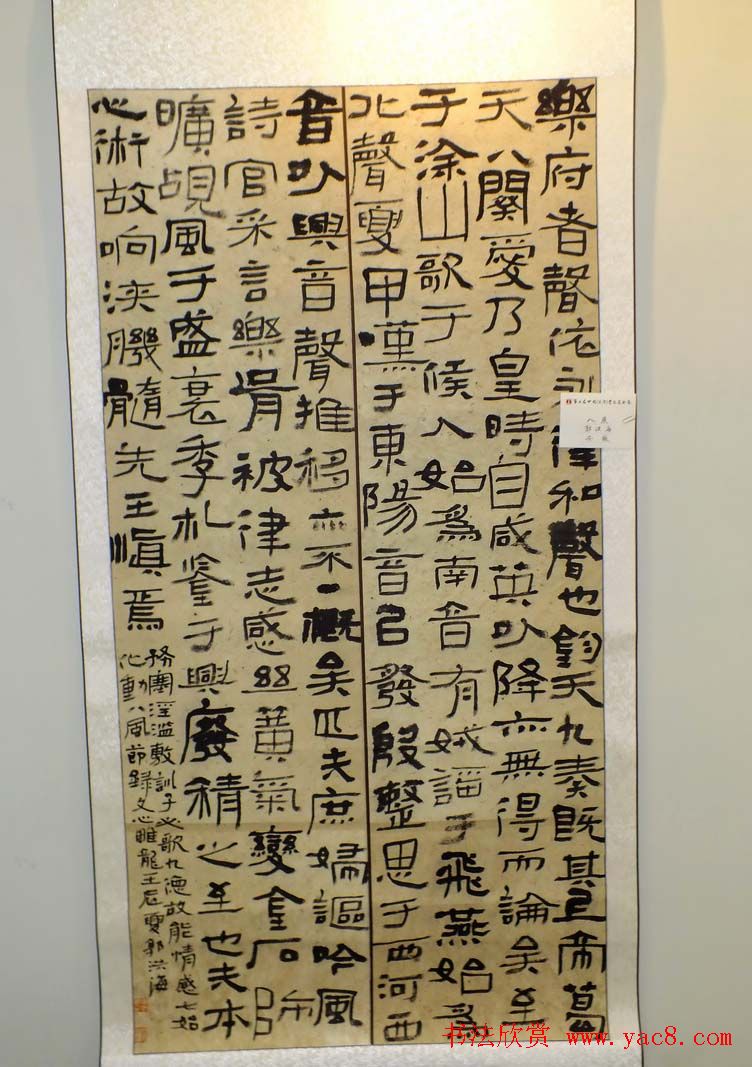 樂府者聲依永律和聲也鈞天九奏既其上帝葛
天八闋爰乃皇時自咸英以降亦無得而論矣至
于涂山歌于候人始爲南音有娀謡于飛燕始爲
北聲夏甲嘆于東陽音以發殷整思于西河西
音以興音聲推移亦不一概矣匹夫庶婦謳吟風
詩官采言樂胥被律志感絲黄氣變金石以師
曠覘風于盛衰季札鑒于興廢精之至也夫本
心術故响浹肌髓先王慎焉
務塞淫濫敷訓子必歌九德故能情感七始
化動八風節録文心雕龍壬辰夏郭洪海
郭洪海
书法欣赏 www.yac8.com